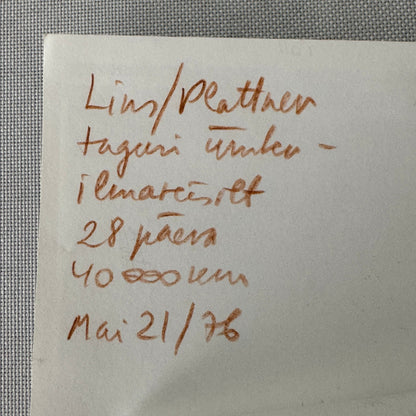 Lins/Plattner
tagusi ümber-
ilmareisilt
28 päeva
40 000 km
Mai 21/76